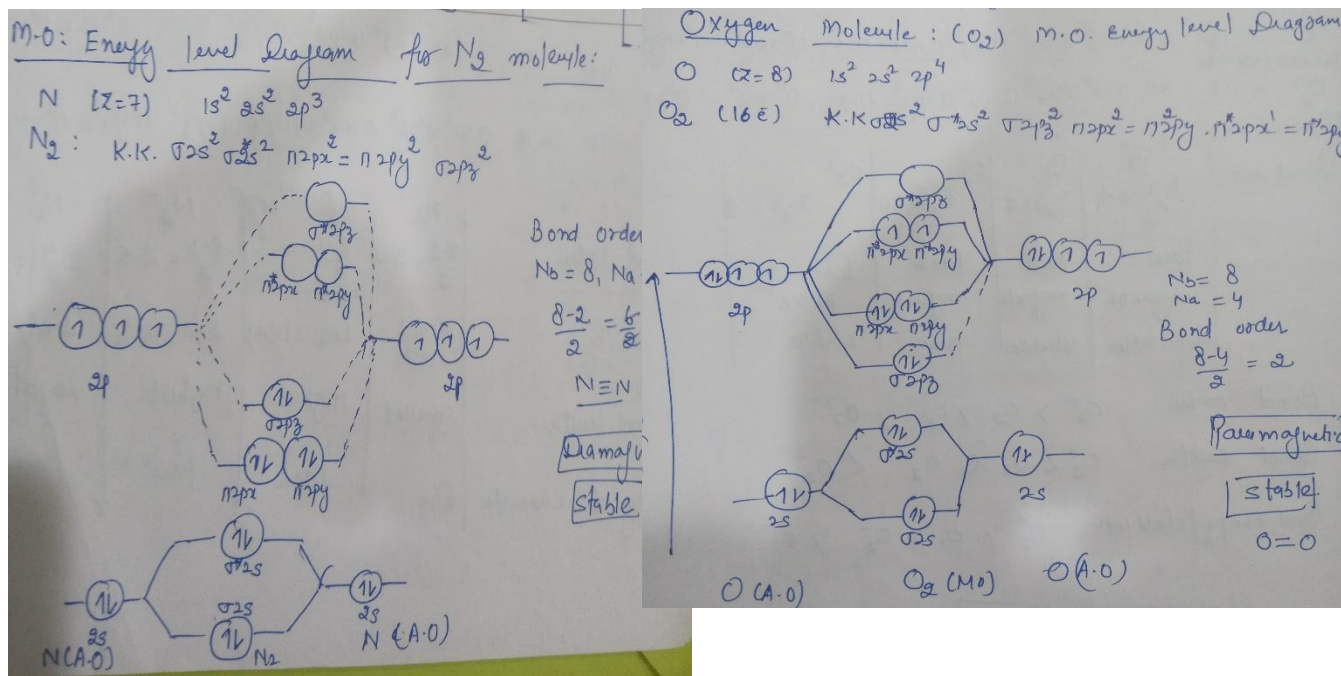 M.O: Energy level Diagram for N2 molecule:
N (Z=7) 1s² 2s² 2p³
N2: K.K. σ2s² σ*2s² π2px² = π2py² σ2pz²
σ*2pz
π*2px π*2py
1 1 1
2p
1 1 1
2p
1⇂
σ2pz
1⇂ 1⇂
π2px π2py
1⇂
σ*2s
1⇂
2s
N(A.O)
σ2s
1⇂
N2
1⇂
2s
N (A.O)
Bond order
Nb = 8, Na
8-2/2 = 6/2
N≡N
Diamag
stable
Oxygen Molecule: (O2) M.O. Energy level Diagram
O (Z=8) 1s² 2s² 2p⁴
O2 (16e) K.K σ2s² σ*2s² σ2pz² π2px² = π²2py . π*2px¹ = π*2py
σ*2pz
1 1
π*2px π*2py
1⇂ 1 1
2p
1⇂ 1 1
2p
1⇂ 1⇂
π2px π2py
1⇂
σ2pz
1⇂
σ*2s
1⇂
2s
1⇂
2s
1⇂
σ2s
O(A.O) O2 (MO) O(A.O)
Nb = 8
Na = 4
Bond order
8-4/2 = 2
Paramagnetic
stable
O=O